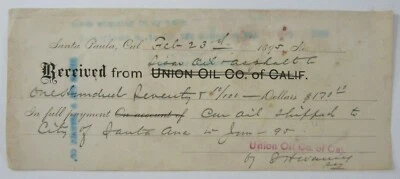 Santa Paula, Cal. Feb 23rd 1895
Oil & Asphalt
Received from UNION OIL CO. of CALIF.
One Hundred Seventy & 51/100 Dollars $170 51
In full payment On account of Car Oil Shipped to
City of Santa Ana in Jan - 95
Union Oil Co. of Cal.
by